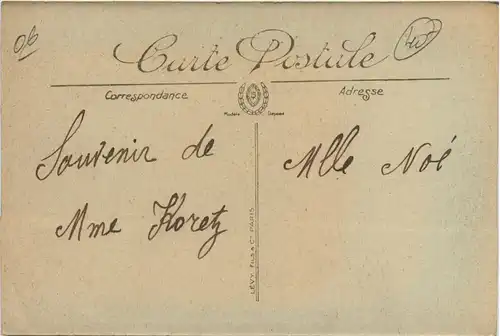 06
Carte Postale
Correspondance
Adresse
Modèle Déposé
Souvenir de
Mme Koretz
Mlle Noé
LÉVY FILS & Cie PARIS